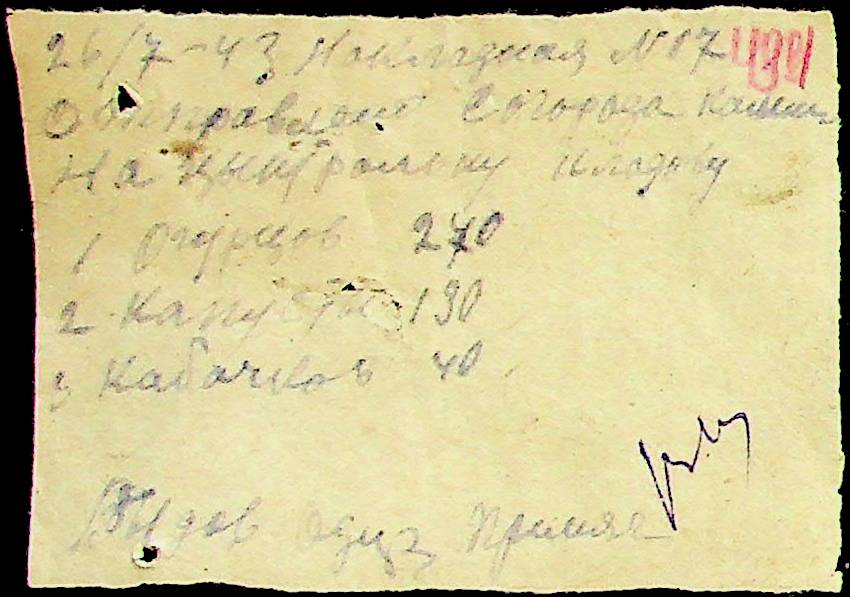 26/7-43 Накладная N 17
Отправлено С огорода
На цынтральну кладову
1 Огурцов 240
2 Капусты 190
3 Кабачков 40
Принял